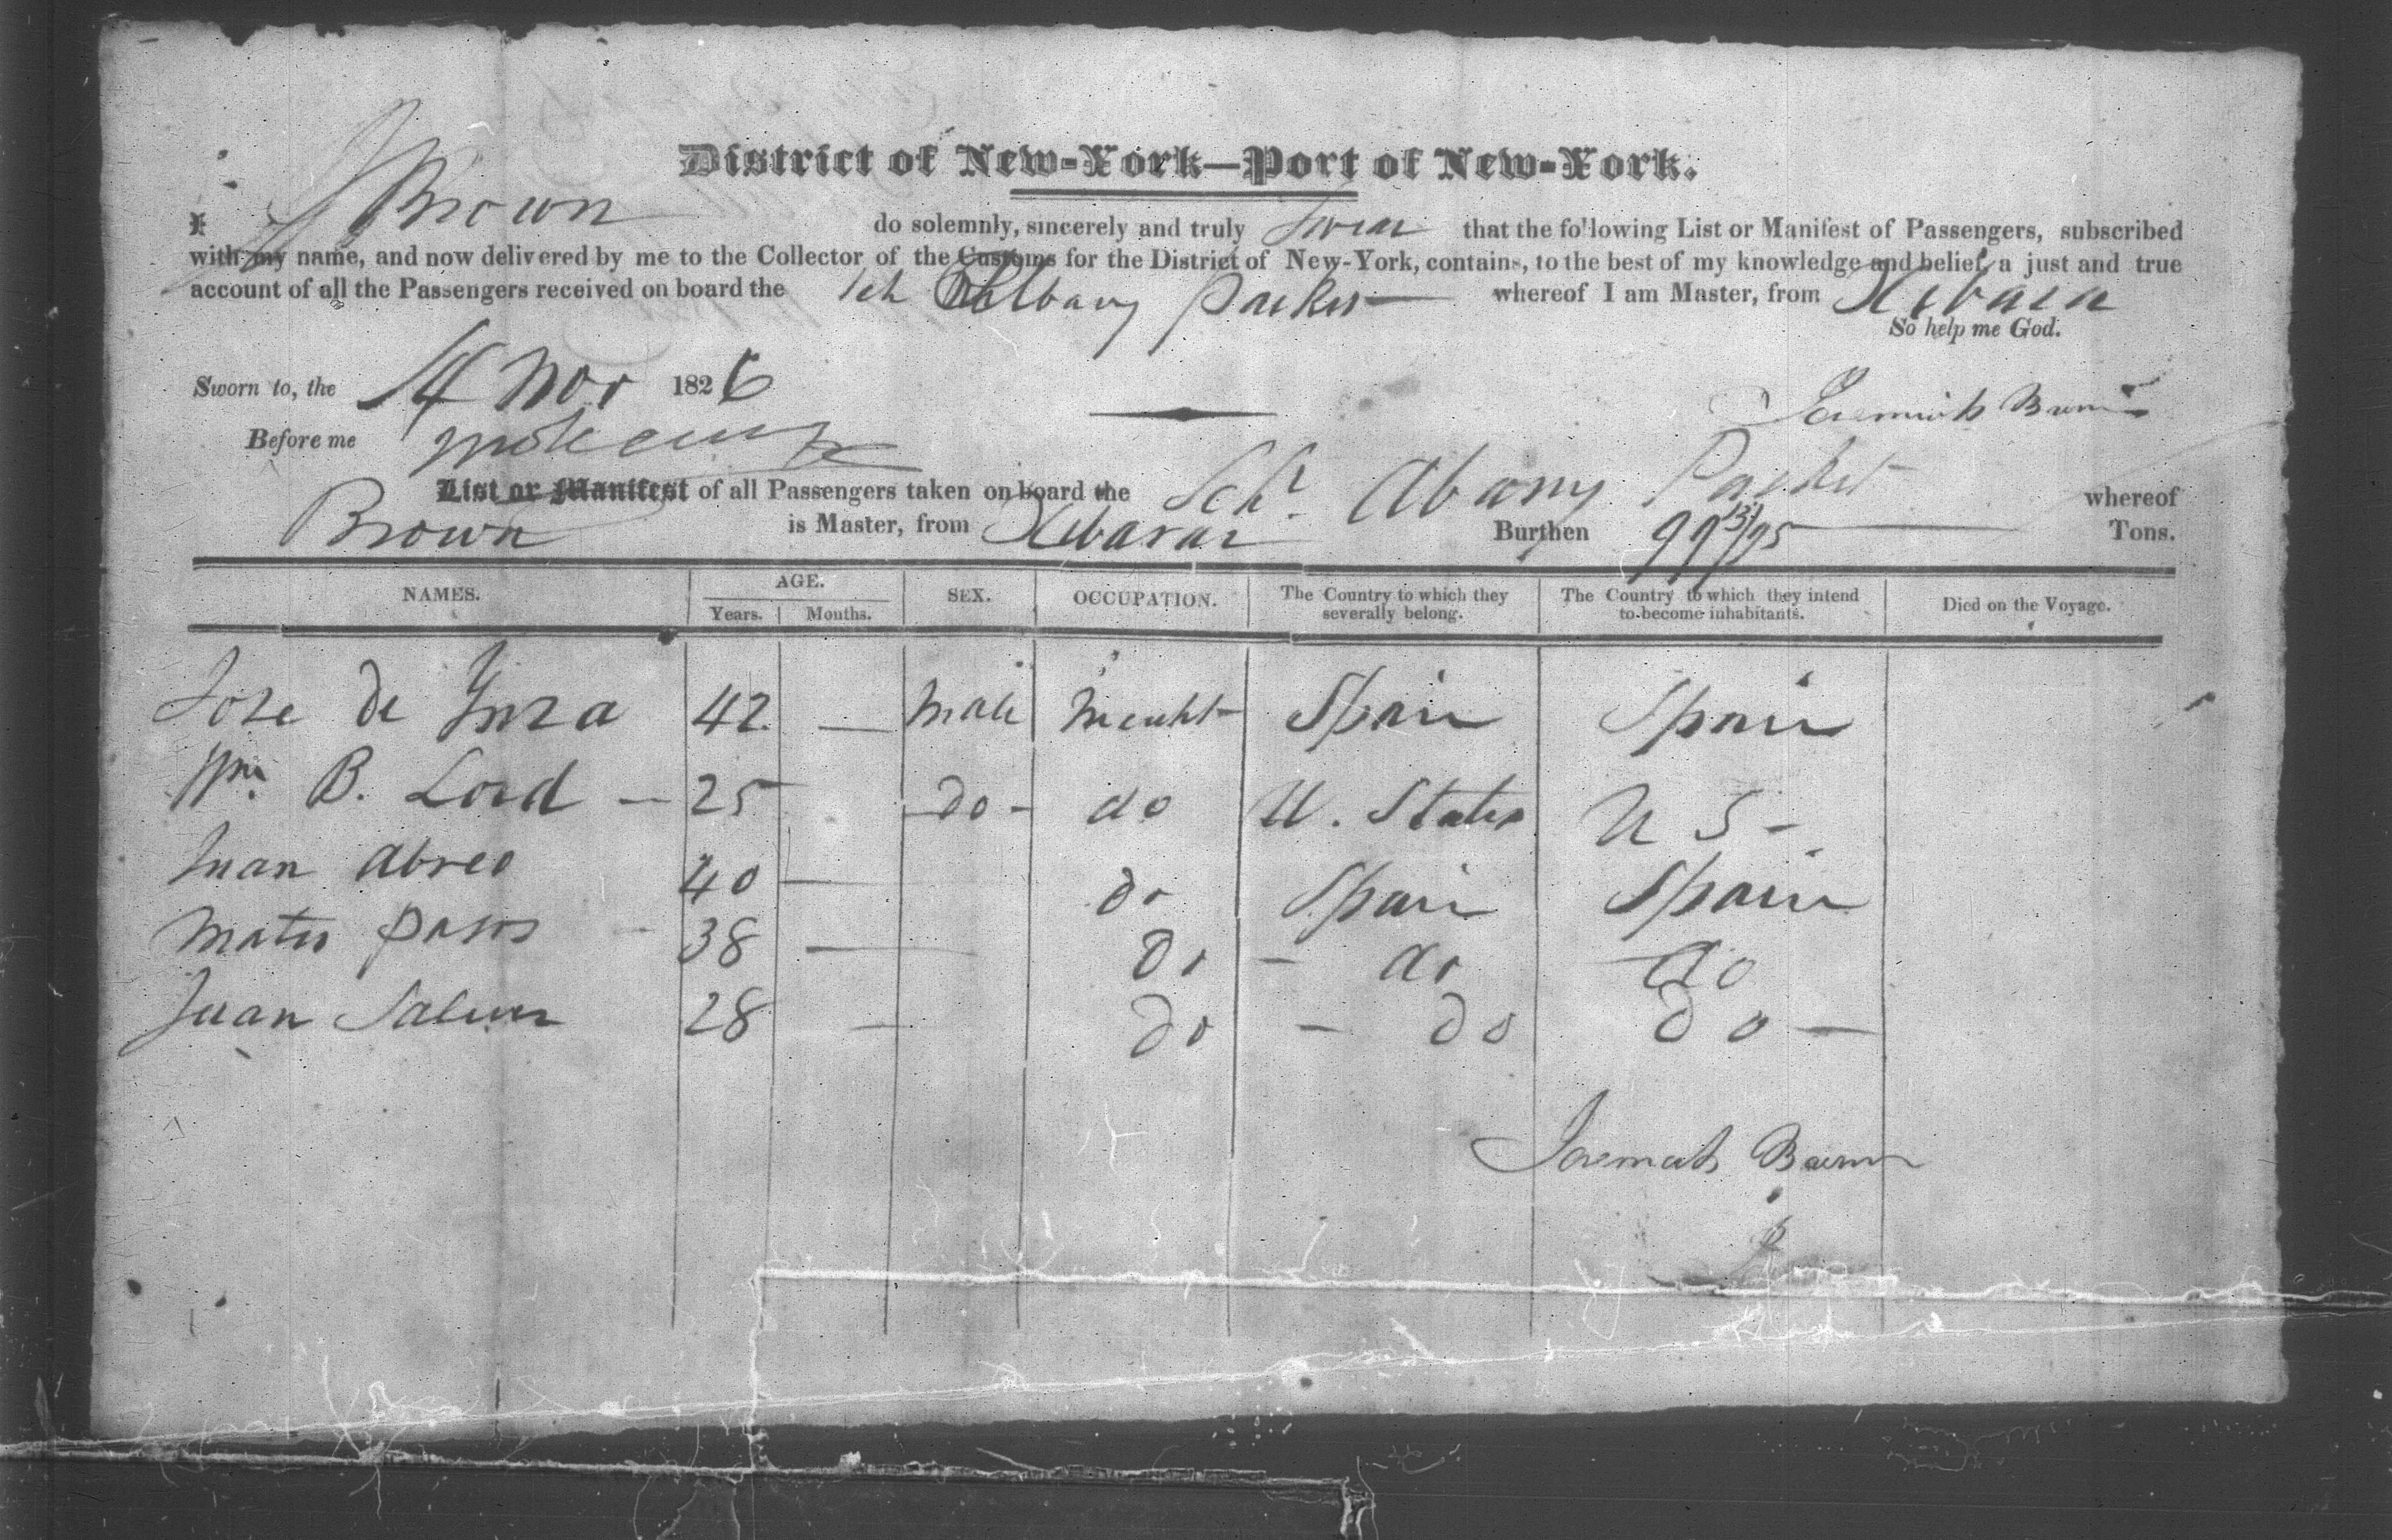 District of New-York—Port of New-York.
I J Brown do solemnly, sincerely and truly swear that the following List or Manifest of Passengers, subscribed
with my name, and now delivered by me to the Collector of the Customs for the District of New-York, contains, to the best of my knowledge and belief, a just and true
account of all the Passengers received on board the Sch Albany Packet whereof I am Master, from Xibara
So help me God.
Sworn to, the 14 Nov 1826
Jeremiah Brown
Before me
List or Manifest of all Passengers taken on board the Schr. Abany Packet whereof
Brown is Master, from Xibara Burthen 99 13/95 Tons.
NAMES. AGE. SEX. OCCUPATION. The Country to which they severally belong. The Country to which they intend to become inhabitants. Died on the Voyage.
Years. Months.
Jose de Ynza 42 — Male Mercht Spain Spain
Wm. B. Lord — 25 do - do U. States U S -
Juan Abreo 40 — do Spain Spain
Mateo Pasos 38 — do - do do
Juan 28 — do - do do —
Jeremiah Brown